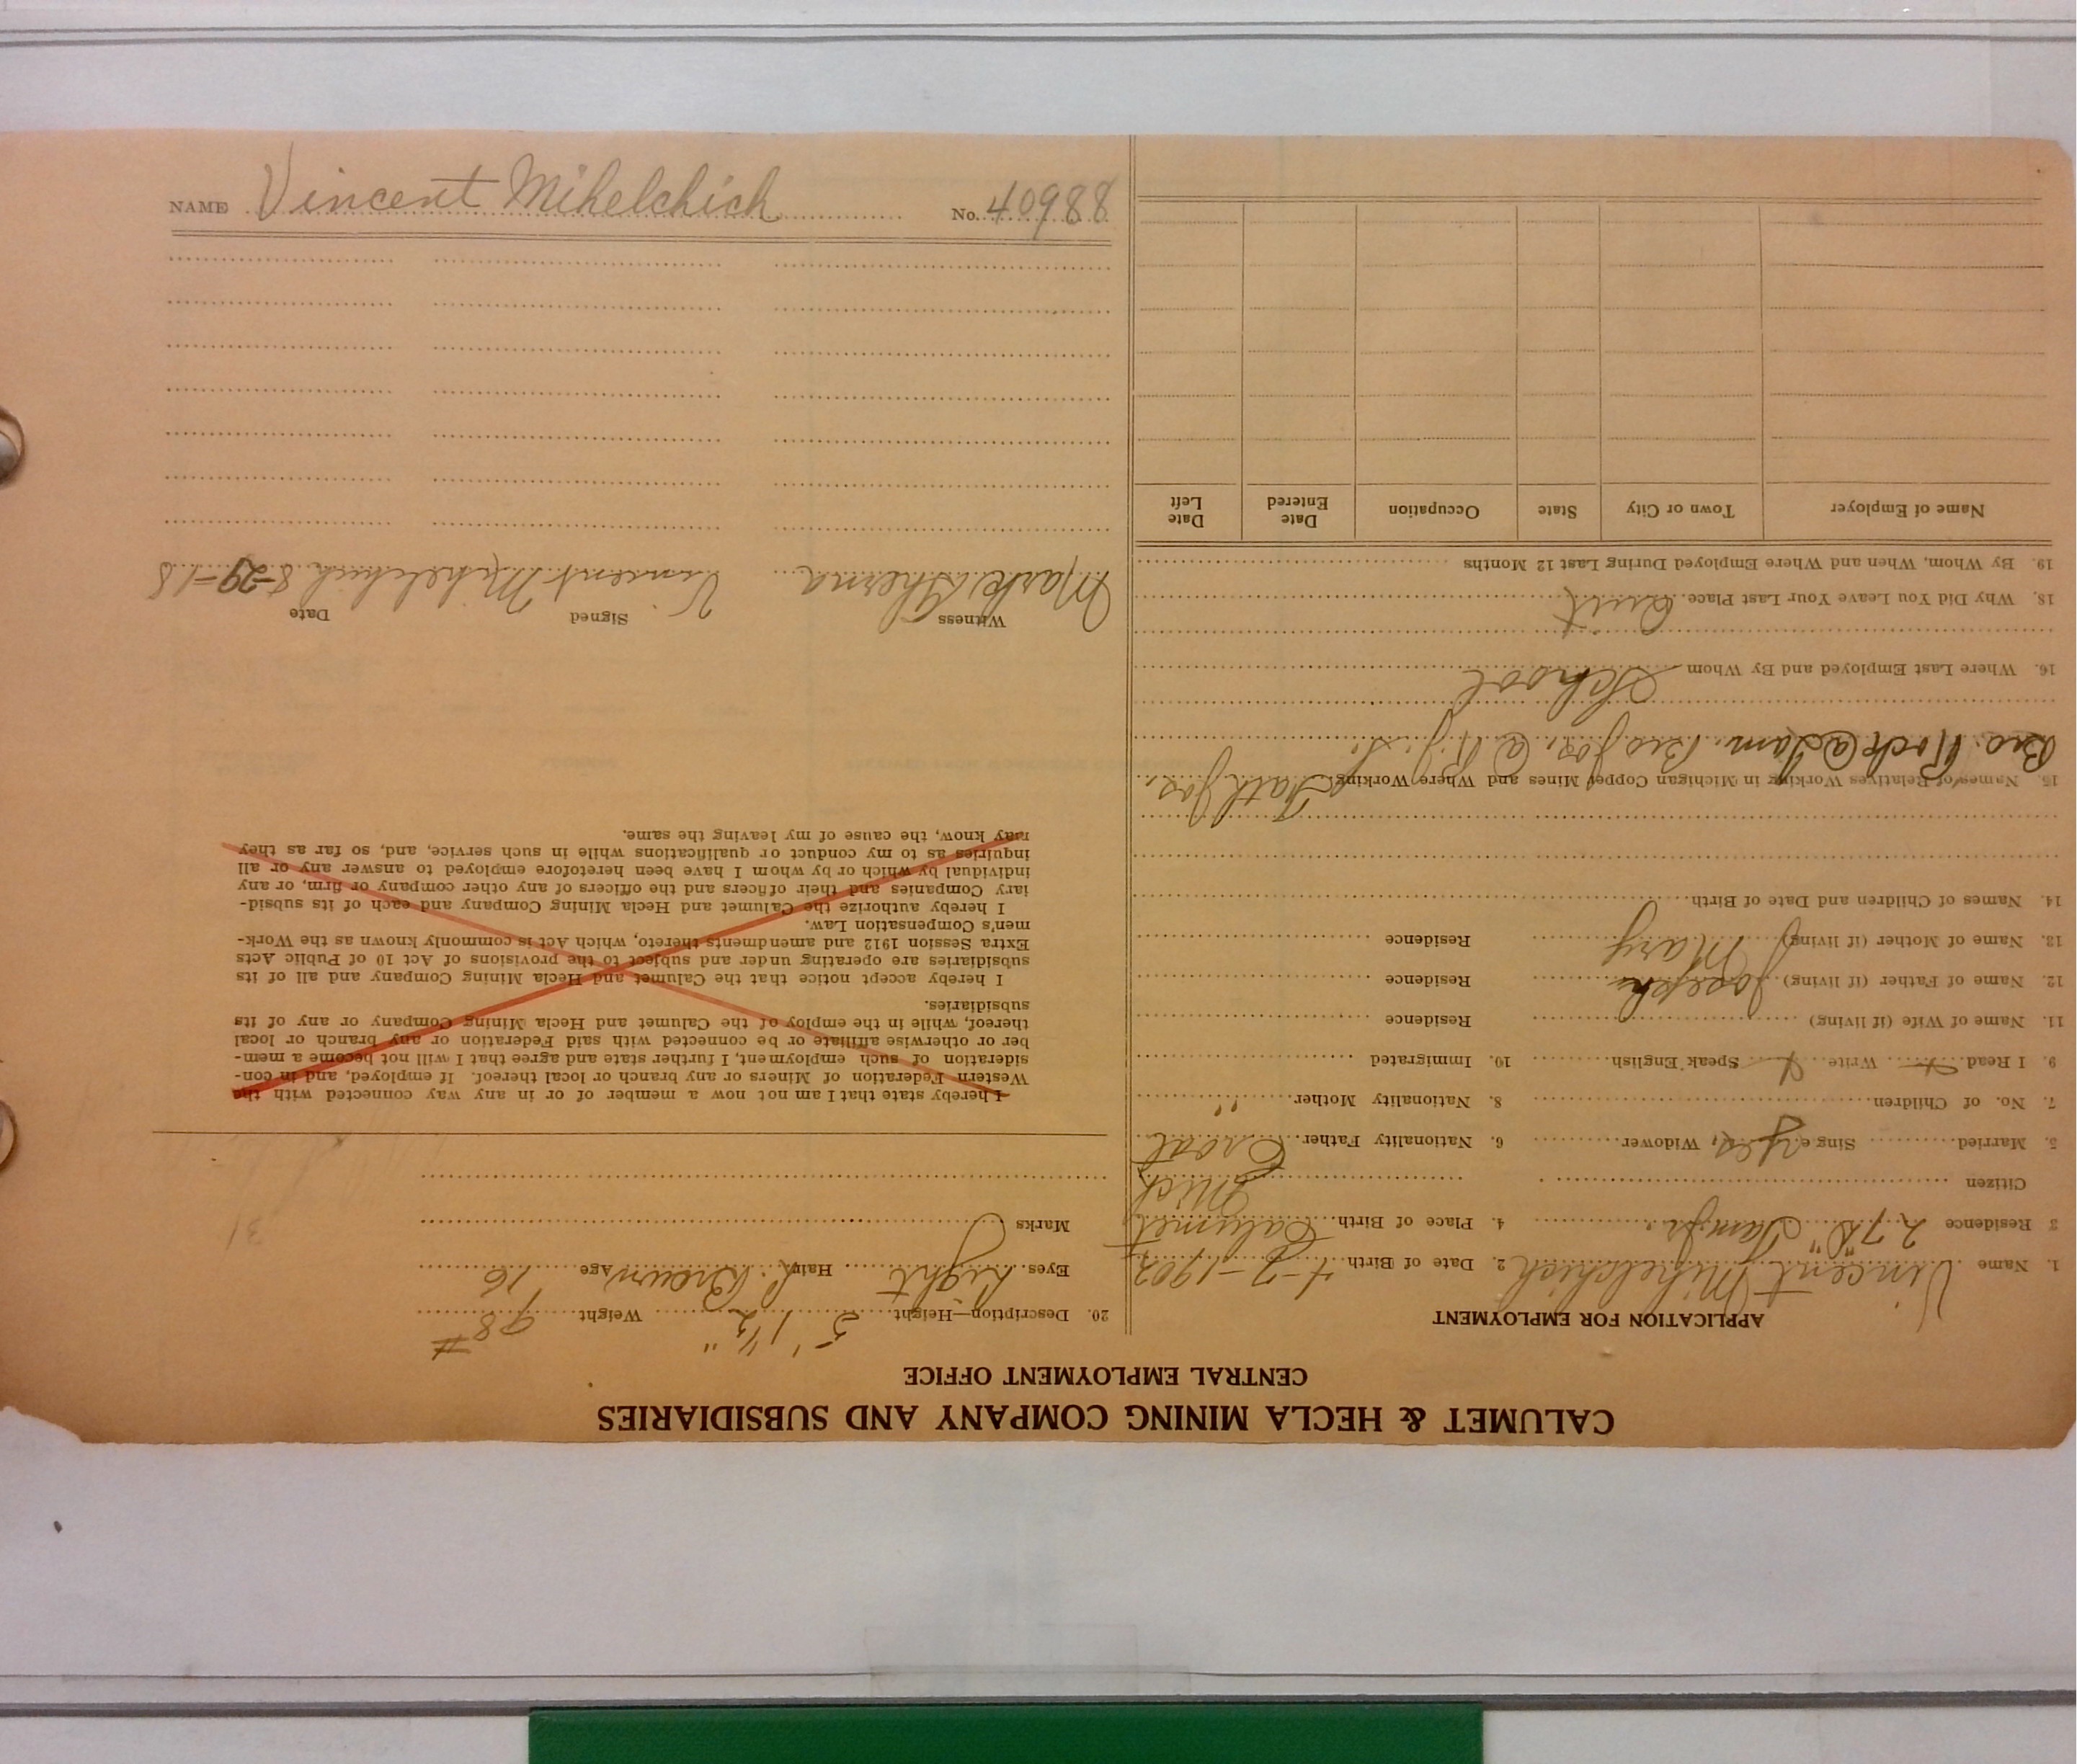 CALUMET & HECLA MINING COMPANY AND SUBSIDIARIES
CENTRAL EMPLOYMENT OFFICE
APPLICATION FOR EMPLOYMENT
1. Name Vincent Mihelchich 2. Date of Birth 7-1902
3 Residence 27 4. Place of Birth Calumet Mich
Citizen
5. Married Single yes, Widower 6. Nationality Father Croat
7. No. of Children 8. Nationality Mother " "
9. I Read Write Speak English 10. Immigrated
11. Name of Wife (if living) Residence
12. Name of Father (if living) Joseph Residence
13. Name of Mother (if living) Mary Residence
14. Names of Children and Date of Birth
15. Names of Relatives Working in Michigan Copper Mines and Where Working Fath Jos.
Bro. @ Tam. Bro Jos. @
16. Where Last Employed and By Whom School
18. Why Did You Leave Your Last Place Quit
19. By Whom, When and Where Employed During Last 12 Months
Name of Employer Town or City State Occupation Date Entered Date Left
20. Description—Height 5' 1½" Weight 98#
Eyes Light Hair L. Brown Age 16
Marks
31
I hereby state that I am not now a member of or in any way connected with the
Western Federation of Miners or any branch or local thereof. If employed, and in con-
sideration of such employment, I further state and agree that I will not become a mem-
ber or otherwise affiliate or be connected with said Federation or any branch or local
thereof, while in the employ of the Calumet and Hecla Mining Company or any of its
subsidiaries.
I hereby accept notice that the Calumet and Hecla Mining Company and all of its
subsidiaries are operating under and subject to the provisions of Act 10 of Public Acts
Extra Session 1912 and amendments thereto, which Act is commonly known as the Work-
men's Compensation Law.
I hereby authorize the Calumet and Hecla Mining Company and each of its subsid-
iary Companies and their officers and the officers of any other company or firm, or any
individual by which or by whom I have been heretofore employed to answer any or all
inquiries as to my conduct or qualifications while in such service, and, so far as they
may know, the cause of my leaving the same.
Witness Signed Date
Mark Vincent Mihelchich 8-29-18
NAME Vincent Mihelchich No. 40988